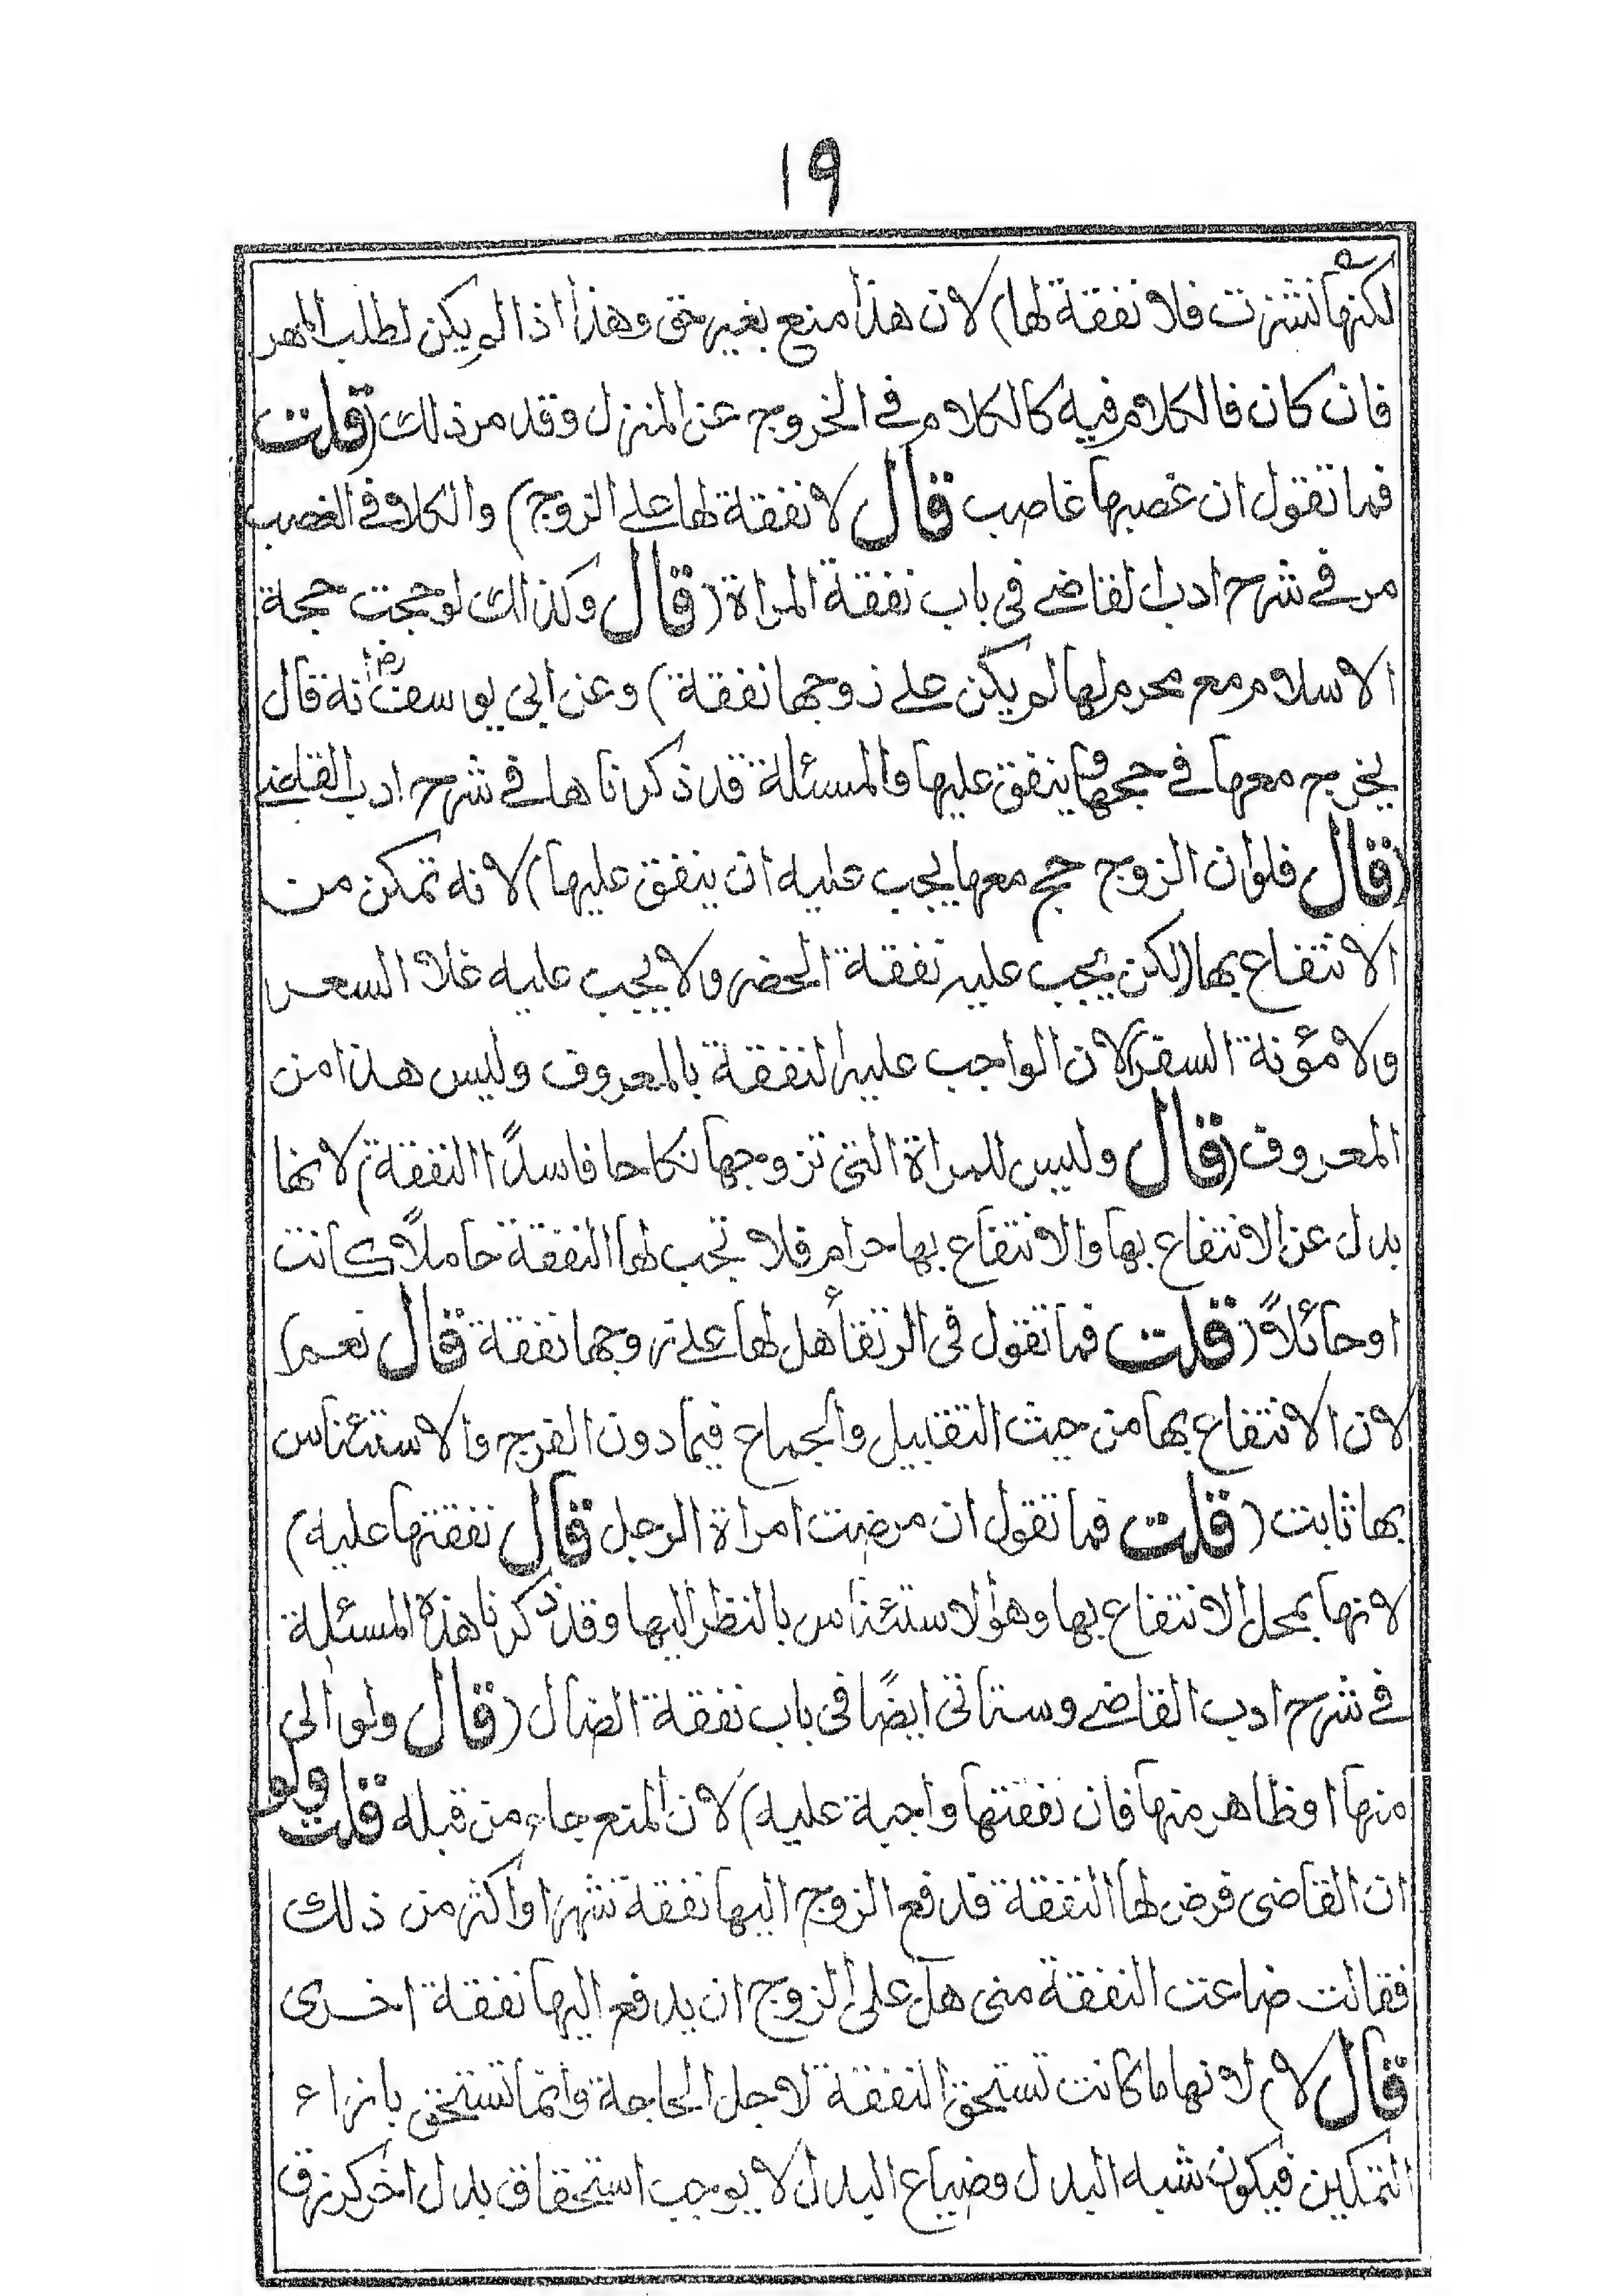 ١٩
لكنها نشزت فلا نفقة لها) لان هذا منع بغير حق وهذا اذا لم يكن لطلب المهر
فان كان فالكلام فيه كالكلام في الخروج عن المنزل وقد مر ذلك (قلت
فما تقول ان غصبها غاصب قال لا نفقة لها على الزوج) والكلام في الغصب
مر في شرح ادب القاضي في باب نفقة المراة (قال وكذالك لو حجت حجة
الاسلام مع محرم لها لم يكن على زوجها نفقة) وعن ابي يوسف رض انه قال
يخرج معها في حجها وينفق عليها والمسئلة قد ذكرناها في شرح ادب القاضي
(قال فلو ان الزوج حج معها يجب عليه ان ينفق عليها) لانه تمكن من
الانتفاع بها (لكن يجب عليه نفقة الحضر ولا يجب عليه غلاء السعر
ولا مؤنة السفر) لان الواجب عليه النفقة بالمعروف وليس هذا من
المعروف (قال وليس للمراة التي تزوجها نكاحا فاسداً النفقة) لانها
بدل عن الانتفاع بها والانتفاع بها حرام فلا تجب لها النفقة حاملاً كانت
او حائلاً (قلت فما تقول في الرتقأ هل لها على زوجها نفقة قال نعم)
لان الانتفاع بها من حيث التقبيل والجماع فيما دون الفرج والاستئناس
بها ثابت (قلت فما تقول ان مرضت امراة الرجل قال نفقتها عليه)
لانها بمحل الانتفاع بها وهو الاستئناس بالنظر اليها وقد ذكرنا هذه المسئلة
في شرح ادب القاضي وستاتي ايضًا في باب نفقة الضال (قال ولو الى
منها او ظاهر منها فان نفقتها واجبة عليه) لان المنع جاء من قبله قلت ولو
ان القاضي فرض لها النفقة فدفع الزوج اليها نفقة شهر او اكثر من ذلك
فقالت ضاعت النفقة مني هل على الزوج ان يدفع اليها نفقة اخرى
قال لا) لانها ما كانت تستحق النفقة لاجل الحاجة وانما تستحق بازاء
التمكين فيكون شبه البدل وضياع البدل لا يوجب استحقاق بدل اخر كرزق